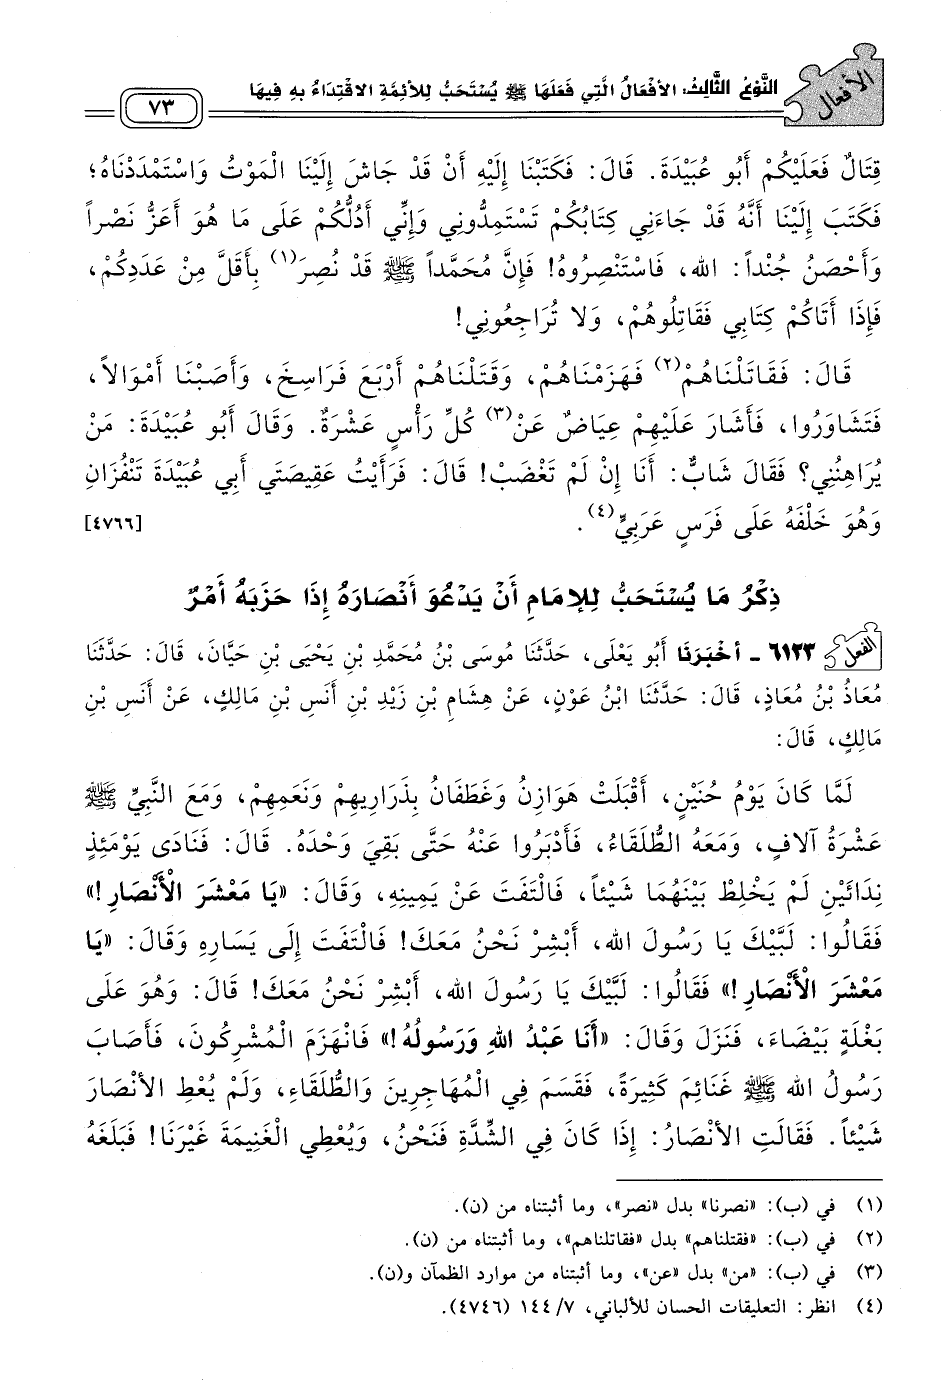 الأفعال
النَّوْعُ الثَّالِثُ: الأَفْعَالُ الَّتِي فَعَلَهَا ﷺ يُسْتَحَبُّ لِلأَئِمَّةِ الاقْتِدَاءُ بِهِ فِيهَا
٧٣
قِتَالٌ فَعَلَيْكُمْ أَبُو عُبَيْدَةَ. قَالَ: فَكَتَبْنَا إِلَيْهِ أَنْ قَدْ جَاشَ إِلَيْنَا الْمَوْتُ وَاسْتَمْدَدْنَاهُ؛
فَكَتَبَ إِلَيْنَا أَنَّهُ قَدْ جَاءَنِي كِتَابُكُمْ تَسْتَمِدُّونِي وَإِنِّي أَدُلُّكُمْ عَلَى مَا هُوَ أَعَزُّ نَصْراً
وَأَحْصَنُ جُنْداً: الله، فَاسْتَنْصِرُوهُ! فَإِنَّ مُحَمَّداً ﷺ قَدْ نُصِرَ(١) بِأَقَلَّ مِنْ عَدَدِكُمْ،
فَإِذَا أَتَاكُمْ كِتَابِي فَقَاتِلُوهُمْ، وَلا تُرَاجِعُونِي!
قَالَ: فَقَاتَلْنَاهُمْ(٢) فَهَزَمْنَاهُمْ، وَقَتَلْنَاهُمْ أَرْبَعَ فَرَاسِخَ، وَأَصَبْنَا أَمْوَالاً،
فَتَشَاوَرُوا، فَأَشَارَ عَلَيْهِمْ عِيَاضٌ عَنْ(٣) كُلِّ رَأْسٍ عَشْرَةٌ. وَقَالَ أَبُو عُبَيْدَةَ: مَنْ
يُرَاهِنُنِي؟ فَقَالَ شَابٌّ: أَنَا إِنْ لَمْ تَغْضَبْ! قَالَ: فَرَأَيْتُ عَقِيصَتَي أَبِي عُبَيْدَةَ تَنْفُزَانِ
وَهُوَ خَلْفَهُ عَلَى فَرَسٍ عَرَبِيٍّ(٤). [٤٧٦٦]
ذِكْرُ مَا يُسْتَحَبُّ لِلإِمَامِ أَنْ يَدْعُوَ أَنْصَارَهُ إِذَا حَزَبَهُ أَمْرٌ
الفعل ٦١٢٣ - أَخْبَرَنَا أَبُو يَعْلَى، حَدَّثَنَا مُوسَى بْنُ مُحَمَّدِ بْنِ يَحْيَى بْنِ حَيَّانَ، قَالَ: حَدَّثَنَا
مُعَاذُ بْنُ مُعَاذٍ، قَالَ: حَدَّثَنَا ابْنُ عَوْنٍ، عَنْ هِشَامِ بْنِ زَيْدِ بْنِ أَنَسِ بْنِ مَالِكٍ، عَنْ أَنَسِ بْنِ
مَالِكٍ، قَالَ:
لَمَّا كَانَ يَوْمُ حُنَيْنٍ، أَقْبَلَتْ هَوَازِنُ وَغَطَفَانُ بِذَرَارِيهِمْ وَنَعَمِهِمْ، وَمَعَ النَّبِيِّ ﷺ
عَشْرَةُ آلافٍ، وَمَعَهُ الطُّلَقَاءُ، فَأَدْبَرُوا عَنْهُ حَتَّى بَقِيَ وَحْدَهُ. قَالَ: فَنَادَى يَوْمَئِذٍ
نِدَائَيْنِ لَمْ يَخْلِطْ بَيْنَهُمَا شَيْئاً، فَالْتَفَتَ عَنْ يَمِينِهِ، وَقَالَ: «يَا مَعْشَرَ الْأَنْصَارِ!»
فَقَالُوا: لَبَّيْكَ يَا رَسُولَ الله، أَبْشِرْ نَحْنُ مَعَكَ! فَالْتَفَتَ إِلَى يَسَارِهِ وَقَالَ: «يَا
مَعْشَرَ الْأَنْصَارِ!» فَقَالُوا: لَبَّيْكَ يَا رَسُولَ الله، أَبْشِرْ نَحْنُ مَعَكَ! قَالَ: وَهُوَ عَلَى
بَغْلَةٍ بَيْضَاءَ، فَنَزَلَ وَقَالَ: «أَنَا عَبْدُ اللهِ وَرَسُولُهُ!» فَانْهَزَمَ الْمُشْرِكُونَ، فَأَصَابَ
رَسُولُ الله ﷺ غَنَائِمَ كَثِيرَةً، فَقَسَمَ فِي الْمُهَاجِرِينَ وَالطُّلَقَاءِ، وَلَمْ يُعْطِ الأَنْصَارَ
شَيْئاً. فَقَالَتِ الأَنْصَارُ: إِذَا كَانَ فِي الشِّدَّةِ فَنَحْنُ، وَيُعْطِي الْغَنِيمَةَ غَيْرَنَا! فَبَلَغَهُ
(١) في (ب): «نصرنا» بدل «نصر»، وما أثبتناه من (ن).
(٢) في (ب): «فقتلناهم» بدل «فقاتلناهم»، وما أثبتناه من (ن).
(٣) في (ب): «من» بدل «عن»، وما أثبتناه من موارد الظمآن و(ن).
(٤) انظر: التعليقات الحسان للألباني، ٧/ ١٤٤ (٤٧٤٦).